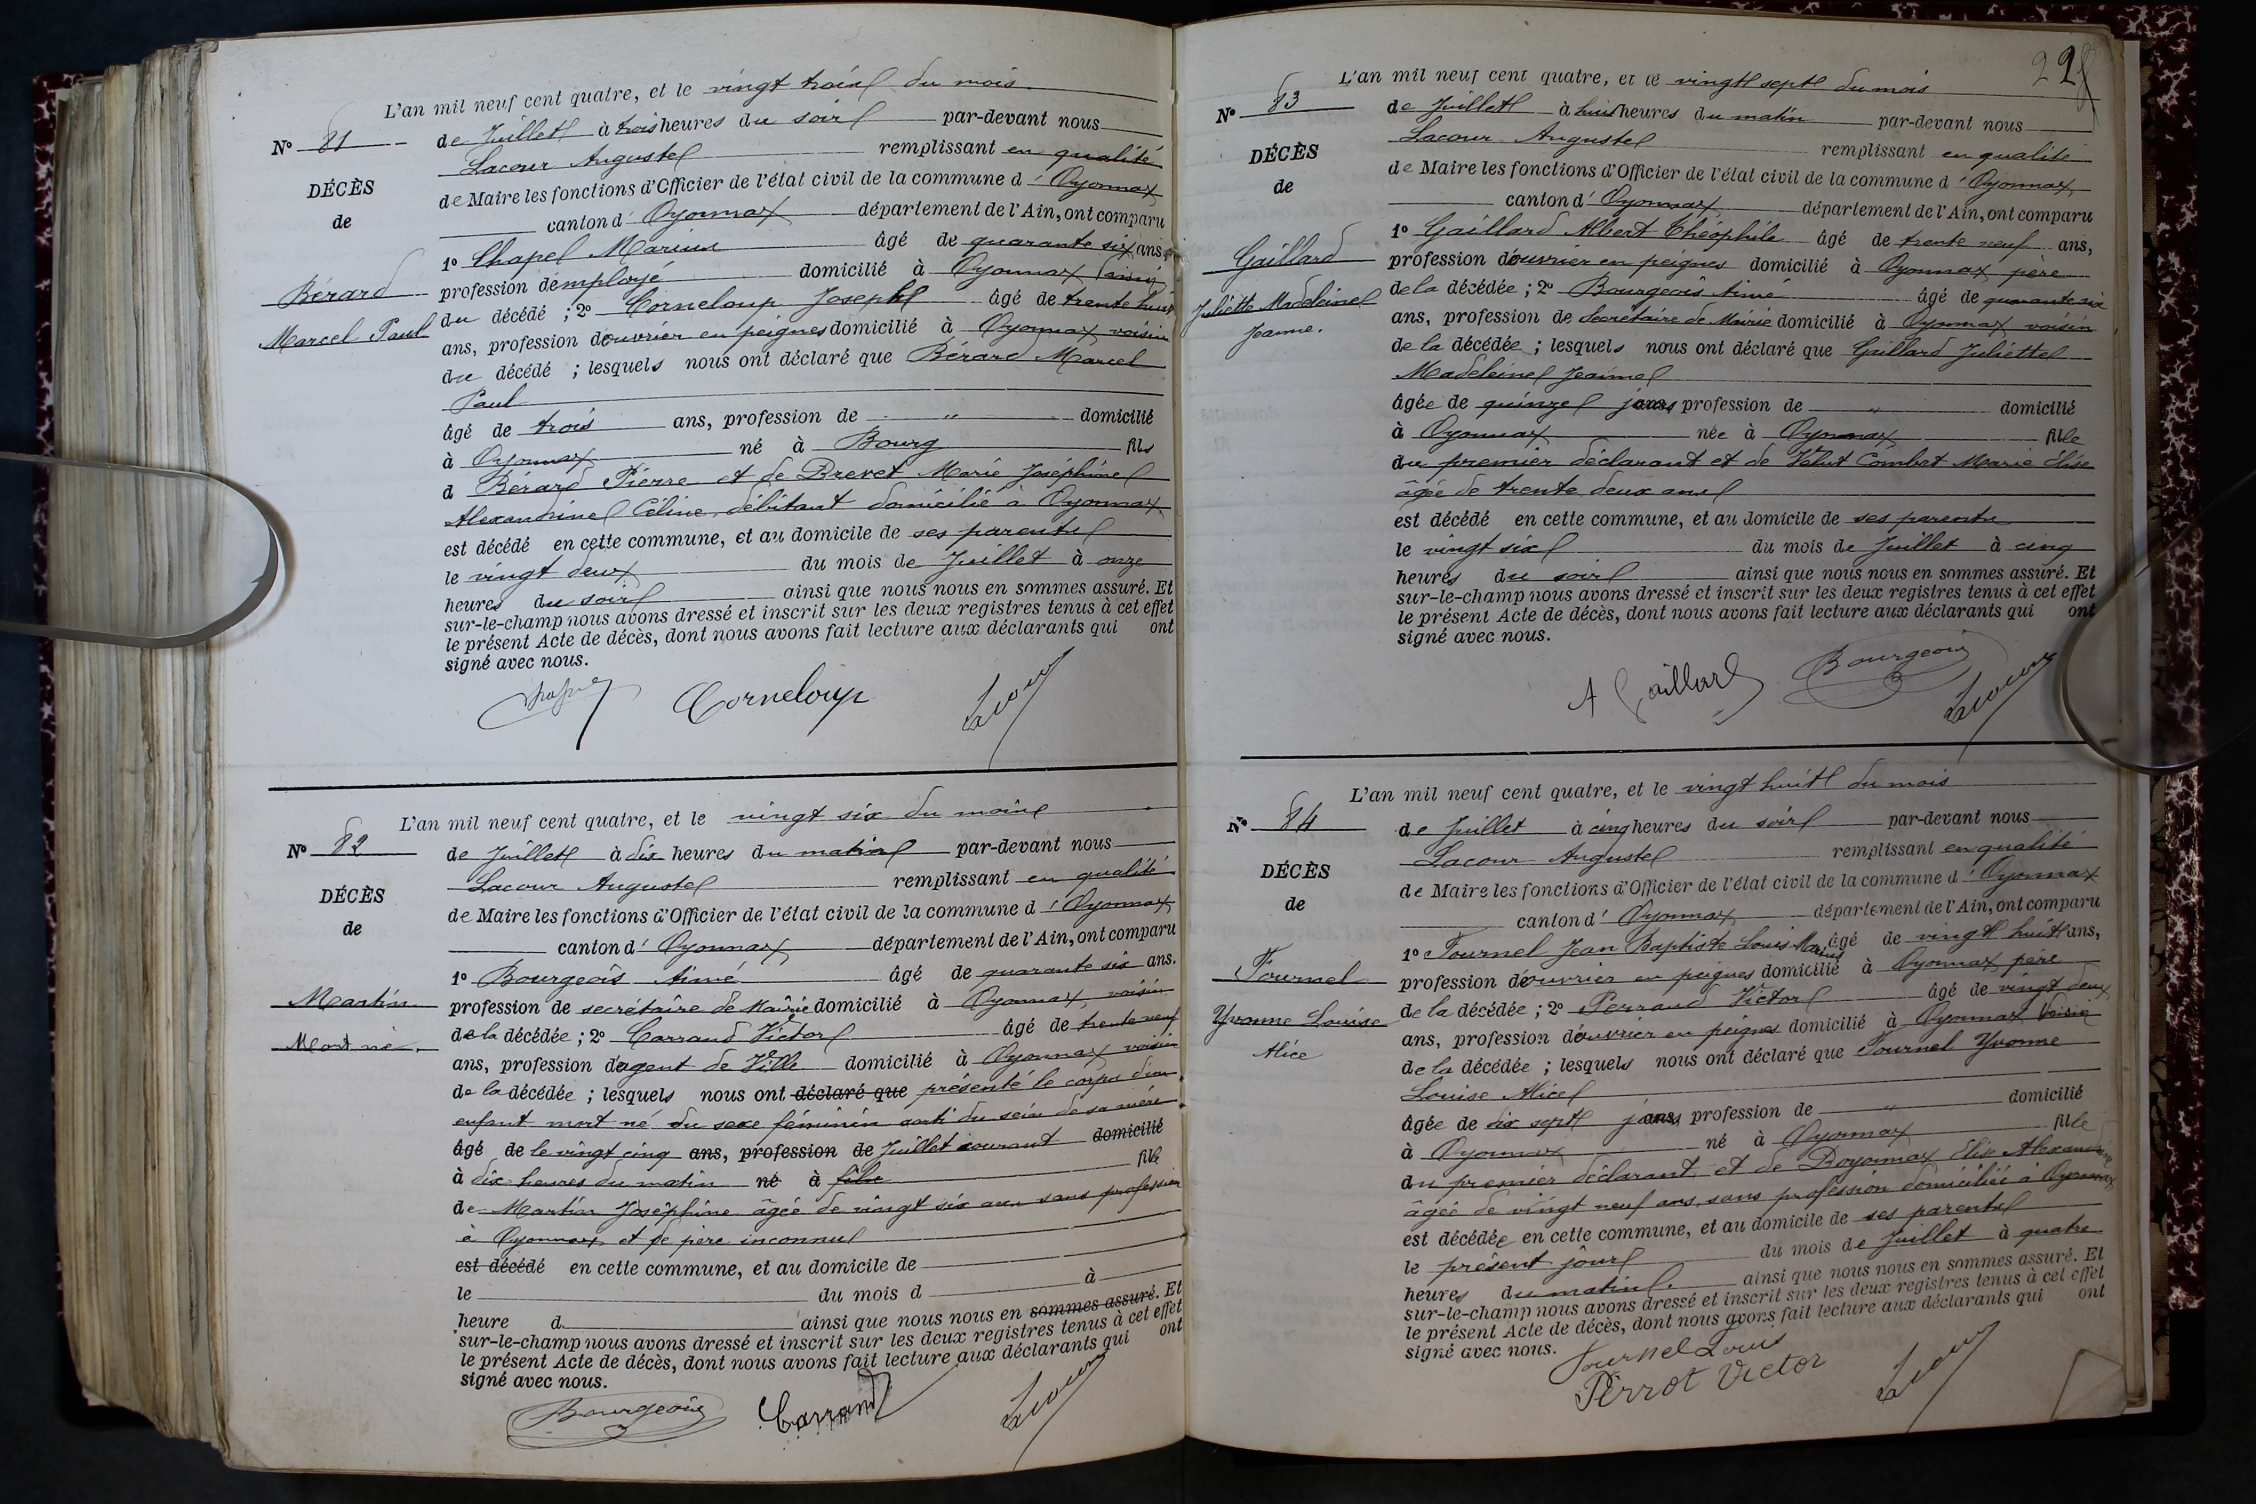 L'an mil neuf cent quatre, et le vingt trois du mois
N° 81
de Juillet à trois heures du soir par-devant nous
Lacour Auguste remplissant en qualité
DÉCÈS
de Maire les fonctions d'Officier de l'état civil de la commune d'Oyonnax
de
canton d'Oyonnax département de l'Ain, ont comparu
1° Chapel Marius âgé de quarante six ans
Bérard
profession d'employé domicilié à Oyonnax
Marcel Paul
du décédé ; 2° Corneloup Joseph âgé de trente huit
ans, profession d'ouvrier en peignes domicilié à Oyonnax voisin
du décédé ; lesquels nous ont déclaré que Bérard Marcel
Paul
âgé de trois ans, profession de " domicilié
à Oyonnax né à Bourg fils
d Bérard Pierre et de Brevet Marie Joséphine
Alexandrine Céline, débitant domicilié à Oyonnax
est décédé en cette commune, et au domicile de ses parents
le vingt deux du mois de Juillet à onze
heures du soir ainsi que nous nous en sommes assuré. Et
sur-le-champ nous avons dressé et inscrit sur les deux registres tenus à cet effet
le présent Acte de décès, dont nous avons fait lecture aux déclarants qui ont
signé avec nous.
Corneloup Lacour
L'an mil neuf cent quatre, et le vingt six du mois
N° 82
de Juillet à dix heures du matin par-devant nous
Lacour Auguste remplissant en qualité
DÉCÈS
de Maire les fonctions d'Officier de l'état civil de la commune d'Oyonnax
de
canton d'Oyonnax département de l'Ain, ont comparu
1° Bourgeois Aimé âgé de quarante six ans.
Martin
profession de secrétaire de Mairie domicilié à Oyonnax, voisin
Mort né.
de la décédée ; 2° Carraud Victor âgé de trente neuf
ans, profession d'agent de Ville domicilié à Oyonnax voisin
de la décédée ; lesquels nous ont déclaré que présenté le corps d'un
enfant mort né du sexe féminin sorti du sein de sa mère
âgé de le vingt cinq ans, profession de Juillet courant domicilié
à dix heures du matin né à fils
de Martin Joséphine âgée de vingt six ans sans profession
à Oyonnax et de père inconnu
est décédé en cette commune, et au domicile de
le du mois d à
heure d ainsi que nous nous en sommes assuré. Et
sur-le-champ nous avons dressé et inscrit sur les deux registres tenus à cet effet
le présent Acte de décès, dont nous avons fait lecture aux déclarants qui ont
signé avec nous.
Bourgeois Carraud Lacour
228
L'an mil neuf cent quatre, et le vingt sept du mois
N° 83
de Juillet à huit heures du matin par-devant nous
Lacour Auguste remplissant en qualité
DÉCÈS
de Maire les fonctions d'Officier de l'état civil de la commune d'Oyonnax,
de
canton d'Oyonnax département de l'Ain, ont comparu
1° Gaillard Albert Théophile âgé de trente neuf ans,
Gaillard
profession d'ouvrier en peignes domicilié à Oyonnax père
Juliette Madeleine
de la décédée ; 2° Bourgeois Aimé âgé de quarante six
Jeanne.
ans, profession de Secrétaire de Mairie domicilié à Oyonnax voisin
de la décédée ; lesquels nous ont déclaré que Gaillard Juliette
Madeleine Jeanne
âgée de quinze jours profession de " domicilié
à Oyonnax née à Oyonnax fille
du premier déclarant et de Velut Combet Marie Elise
âgée de trente deux ans
est décédé en cette commune, et au domicile de ses parents
le vingt six du mois de Juillet à cinq
heures du soir ainsi que nous nous en sommes assuré. Et
sur-le-champ nous avons dressé et inscrit sur les deux registres tenus à cet effet
le présent Acte de décès, dont nous avons fait lecture aux déclarants qui ont
signé avec nous.
A Gaillard Bourgeois Lacour
L'an mil neuf cent quatre, et le vingt huit du mois
N° 84
de Juillet à cinq heures du soir par-devant nous
Lacour Auguste remplissant en qualité
DÉCÈS
de Maire les fonctions d'Officier de l'état civil de la commune d'Oyonnax
de
canton d'Oyonnax département de l'Ain, ont comparu
1° Fournel Jean Baptiste Louis Marius âgé de vingt huit ans,
Fournel
profession d'ouvrier en peignes domicilié à Oyonnax père
Yvonne Louise
de la décédée ; 2° Perraud Victor âgé de vingt deux
Alice
ans, profession d'ouvrier en peignes domicilié à Oyonnax Voisin
de la décédée ; lesquels nous ont déclaré que Fournel Yvonne
Louise Alice
âgée de dix sept jours profession de " domicilié
à Oyonnax né à Oyonnax fille
du premier déclarant, et de Doyonnax Elise Alexandrine
âgée de vingt neuf ans, sans profession domiciliée à Oyonnax
est décédée en cette commune, et au domicile de ses parents
le présent jour du mois de Juillet à quatre
heures du matin. ainsi que nous nous en sommes assuré. Et
sur-le-champ nous avons dressé et inscrit sur les deux registres tenus à cet effet
le présent Acte de décès, dont nous avons fait lecture aux déclarants qui ont
signé avec nous.
Fournel Louis
Perrot Victor Lacour